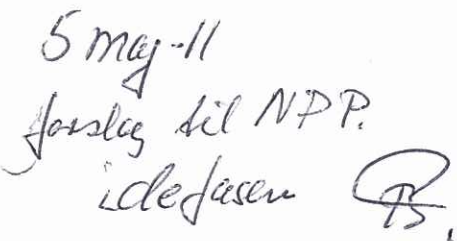 5 maj-11
forslag til NPP.
idefasen